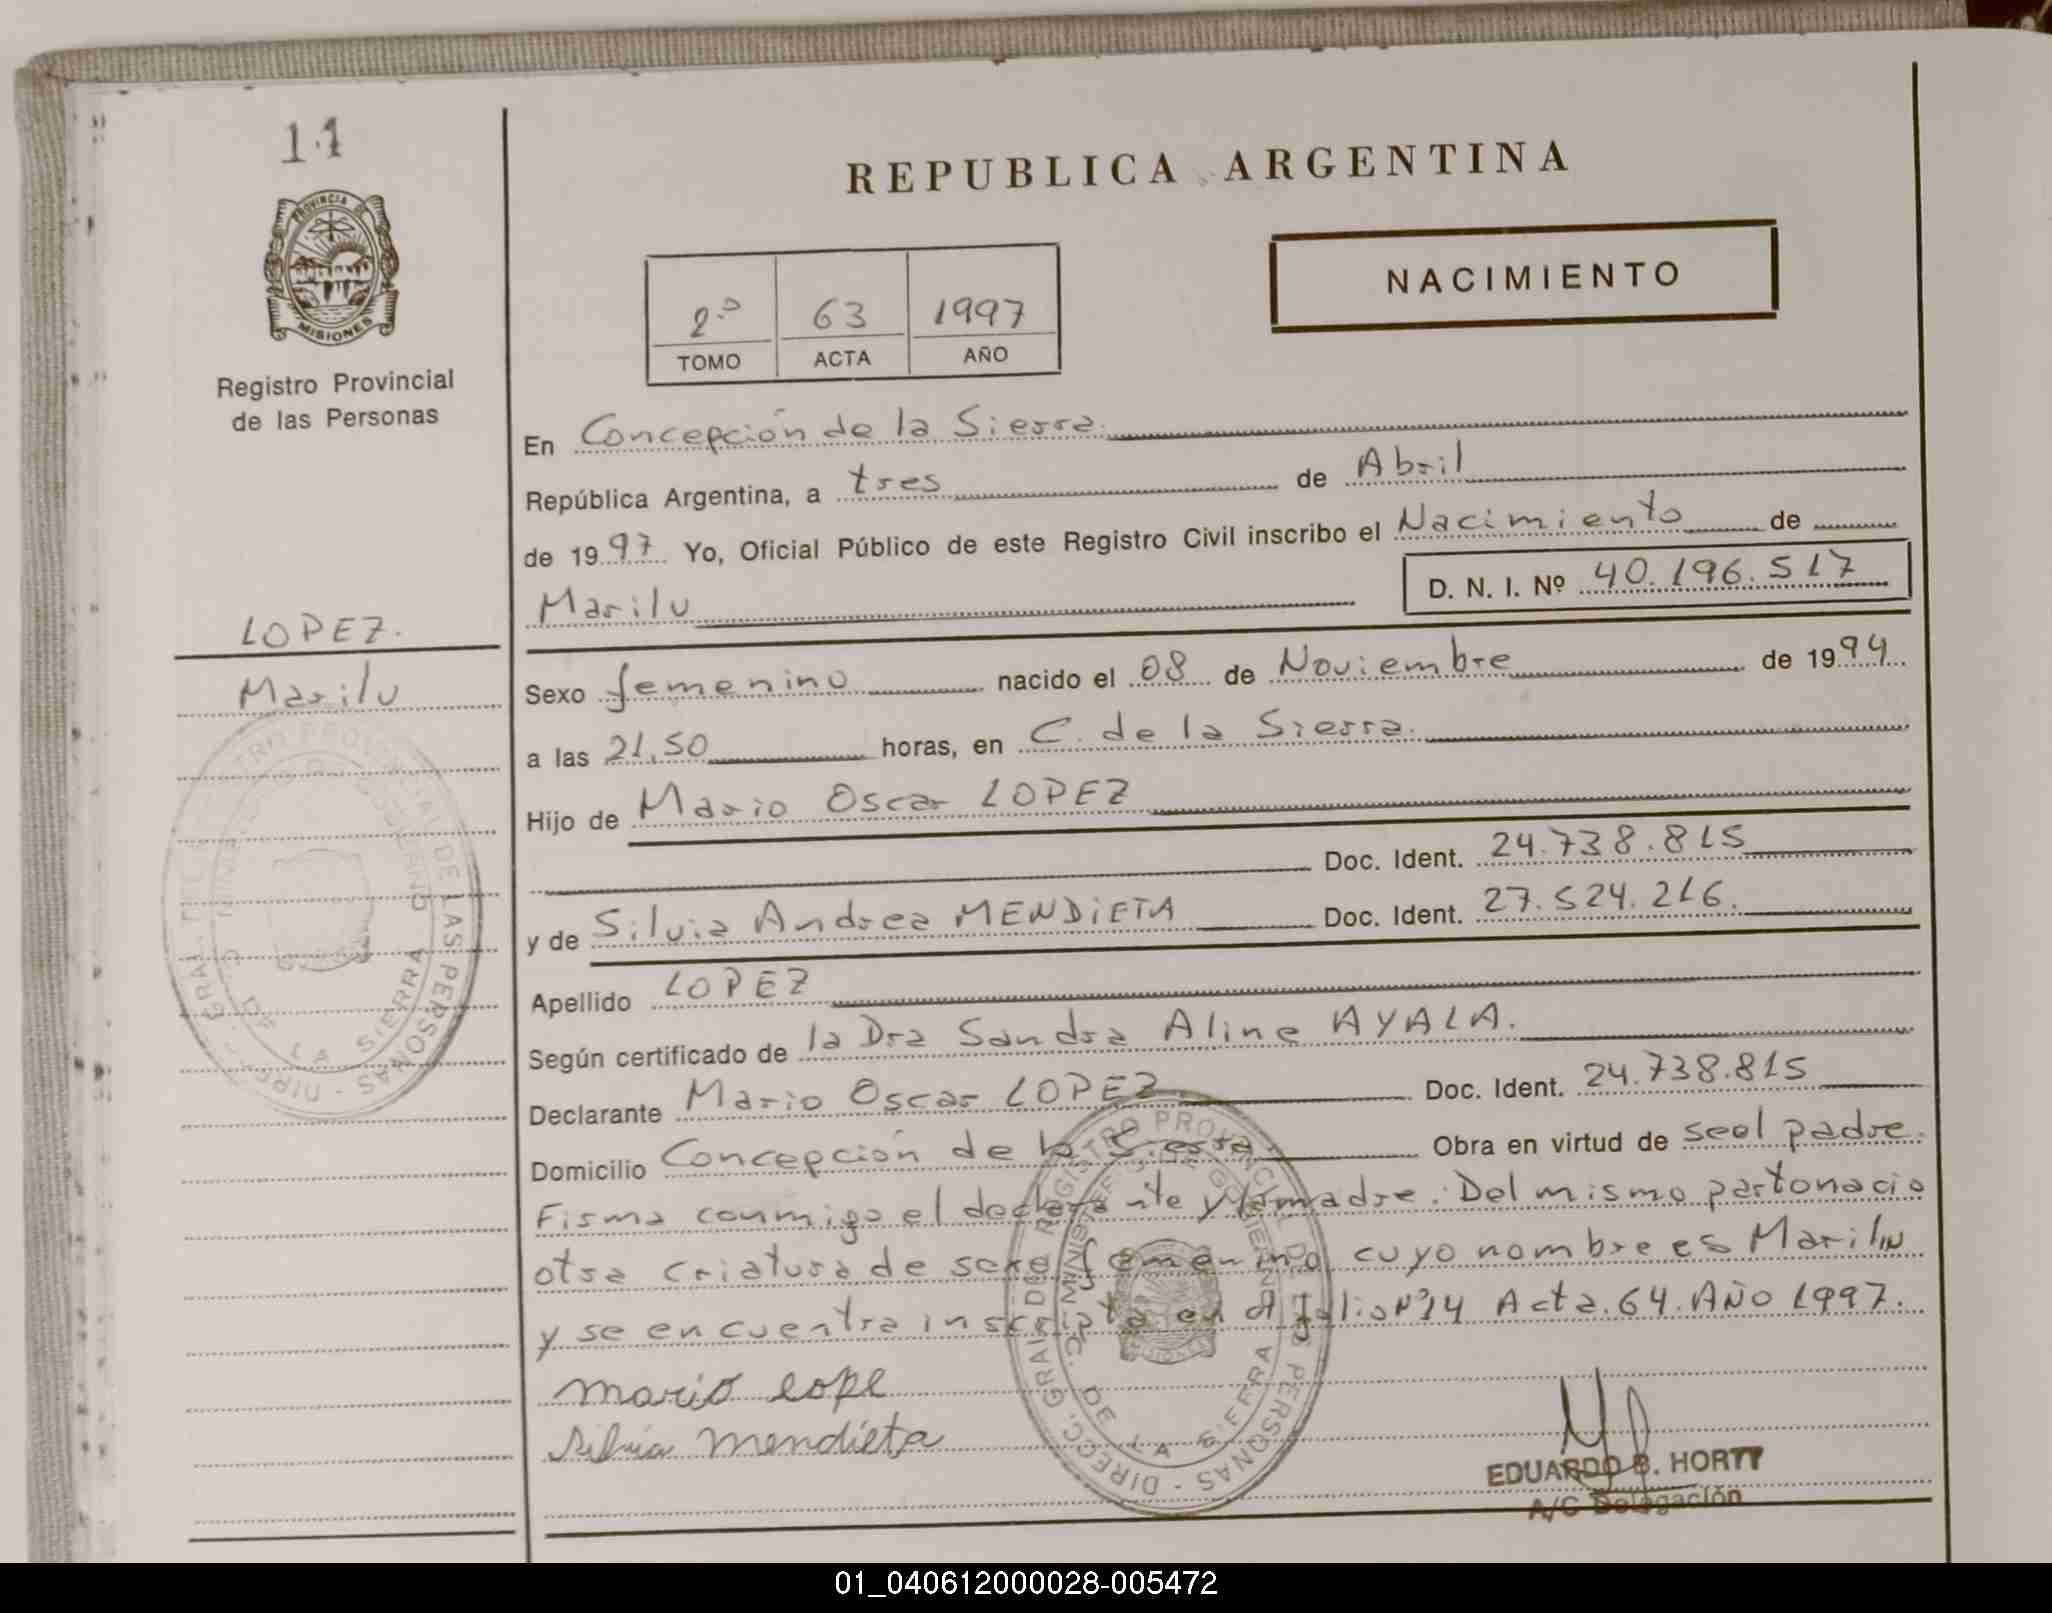 11
PROVINCIA DE
MISIONES
Registro Provincial
de las Personas
LOPEZ.
Marilu
REPUBLICA ARGENTINA
NACIMIENTO
2º 63 1997
TOMO ACTA AÑO
En Concepción de la Sierra
República Argentina, a tres de Abril
de 1997. Yo, Oficial Público de este Registro Civil inscribo el Nacimiento de
Marilu D. N. I. Nº 40.196.517
Sexo femenino nacido el 08 de Noviembre de 1994
a las 21,50 horas, en C. de la Sierra.
Hijo de Mario Oscar LOPEZ
Doc. Ident. 24.738.815
y de Silvia Andrea MENDIETA Doc. Ident. 27.524.216.
Apellido LOPEZ
Según certificado de la Dra Sandra Aline AYALA.
Declarante Mario Oscar LOPEZ. Doc. Ident. 24.738.815
Domicilio Concepción de la Sierra Obra en virtud de se el padre.
Firma conmigo el declarante y la madre. Del mismo parto nacio
otra criatura de sexo femenino, cuyo nombre es Marilin
y se encuentra inscripta en el folio Nº 14 Acta. 64. AÑO 1997.
mario lope
Silvia Mendieta
DIRECC. GRAL DEL REGISTRO PROVINCIAL DE LAS PERSONAS
DE LA SIERRA
EDUARDO B. HORTT
A/C Delegación
01_040612000028-005472